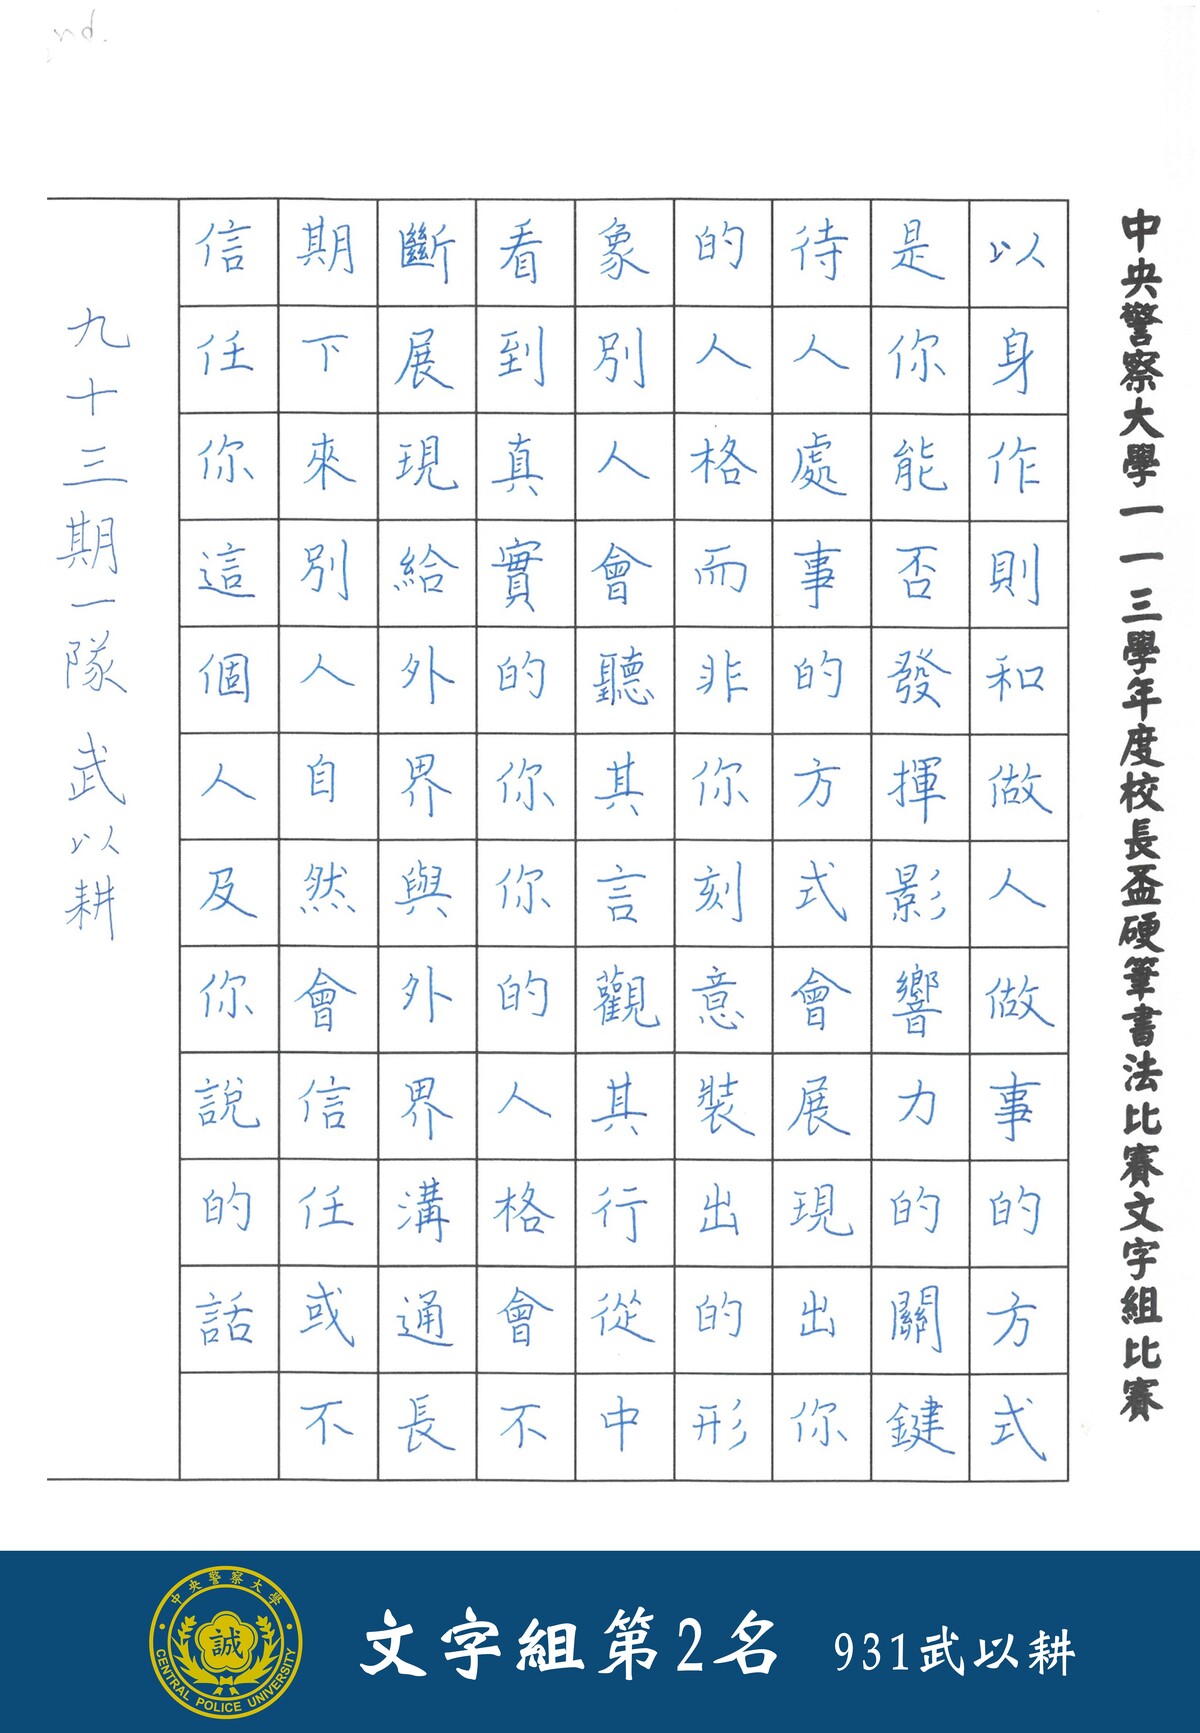 nd.
中央警察大學一一三學年度校長盃硬筆書法比賽文字組比賽
以身作則和做人做事的方式
是你能否發揮影響力的關鍵
待人處事的方式會展現出你
的人格而非你刻意裝出的形
象別人會聽其言觀其行從中
看到真實的你你的人格會不
斷展現給外界與外界溝通長
期下來別人自然會信任或不
信任你這個人及你說的話
九十三期一隊 武以耕
中央警察大學
誠
CENTRAL POLICE UNIVERSITY
文字組第2名 931武以耕